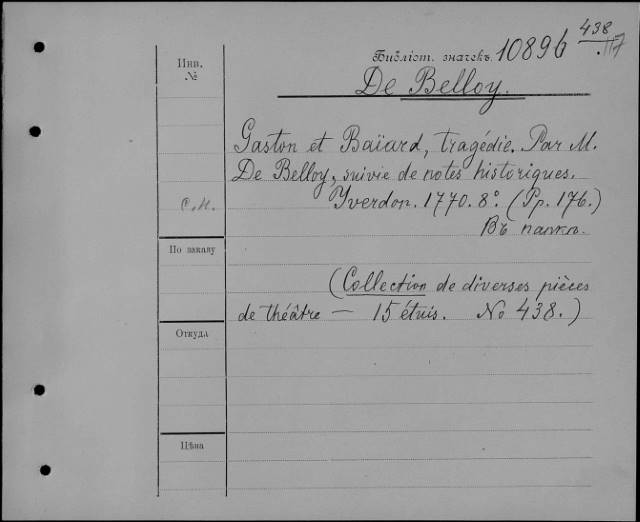 438
Библіот. значекъ. 10896 .117
Инв.
№
De Belloy.
Gaston et Baïard, tragédie. Par M.
De Belloy, suivie de notes historiques.
Yverdon. 1770. 8°. (Pp. 176.)
С.И.
Въ папкѣ.
По заказу
(Collection de diverses pièces
de théâtre — 15 étuis. No 438.)
Откуда
Цѣна